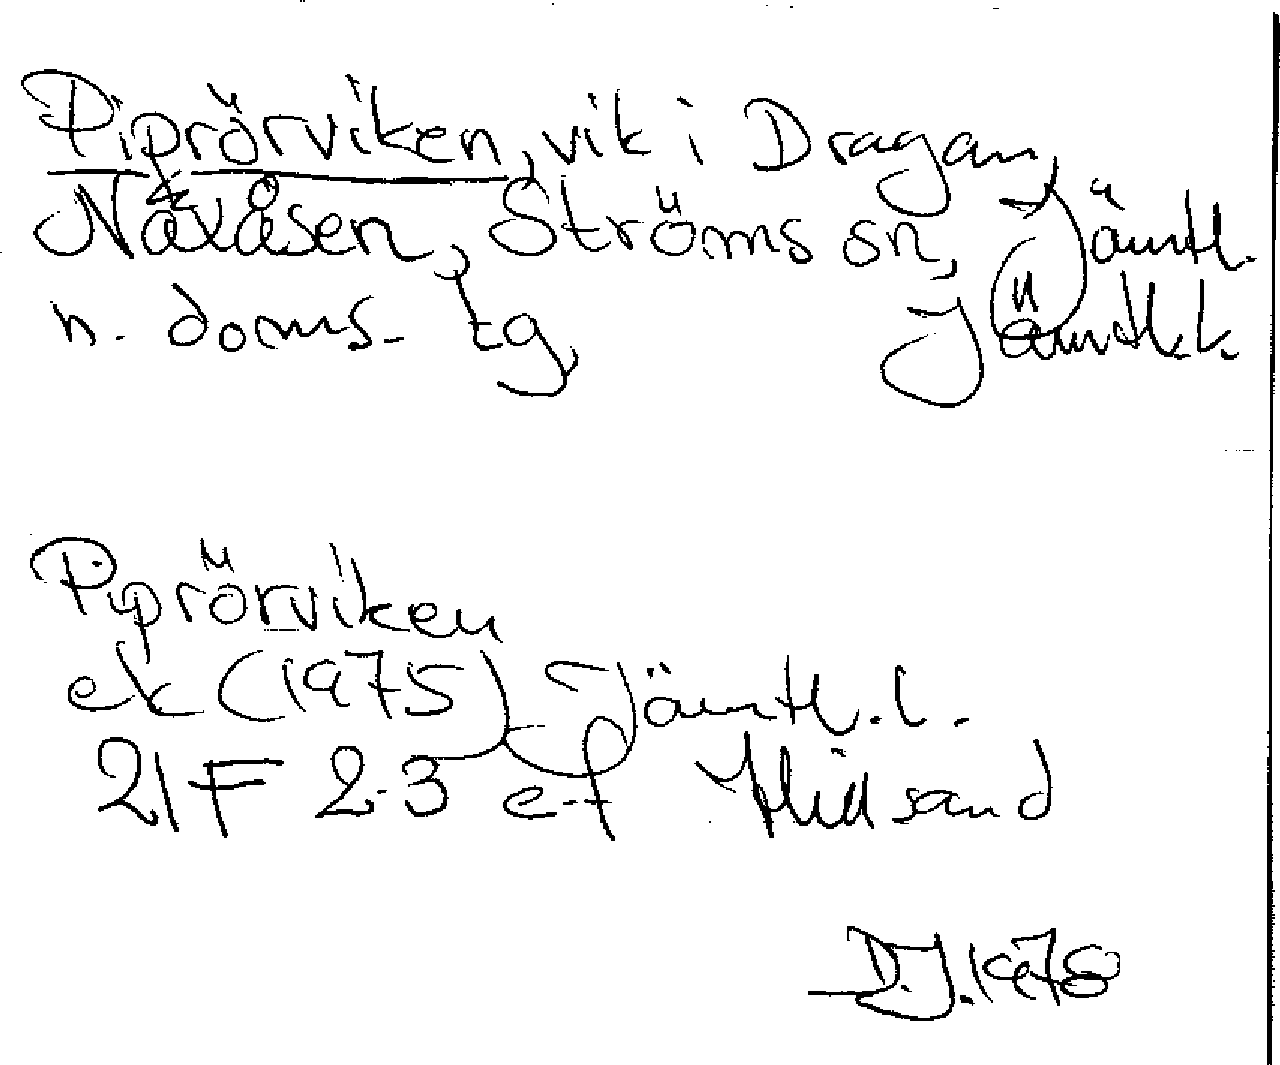 Piprörviken, vik i Dragan,
Näxåsen, Ströms sn, Jämtl.
n. doms. tg, Jämtl. l.
Piprörviken
ek (1975) Jämtl. l.
21F 2-3 e-f
D.J. 1978